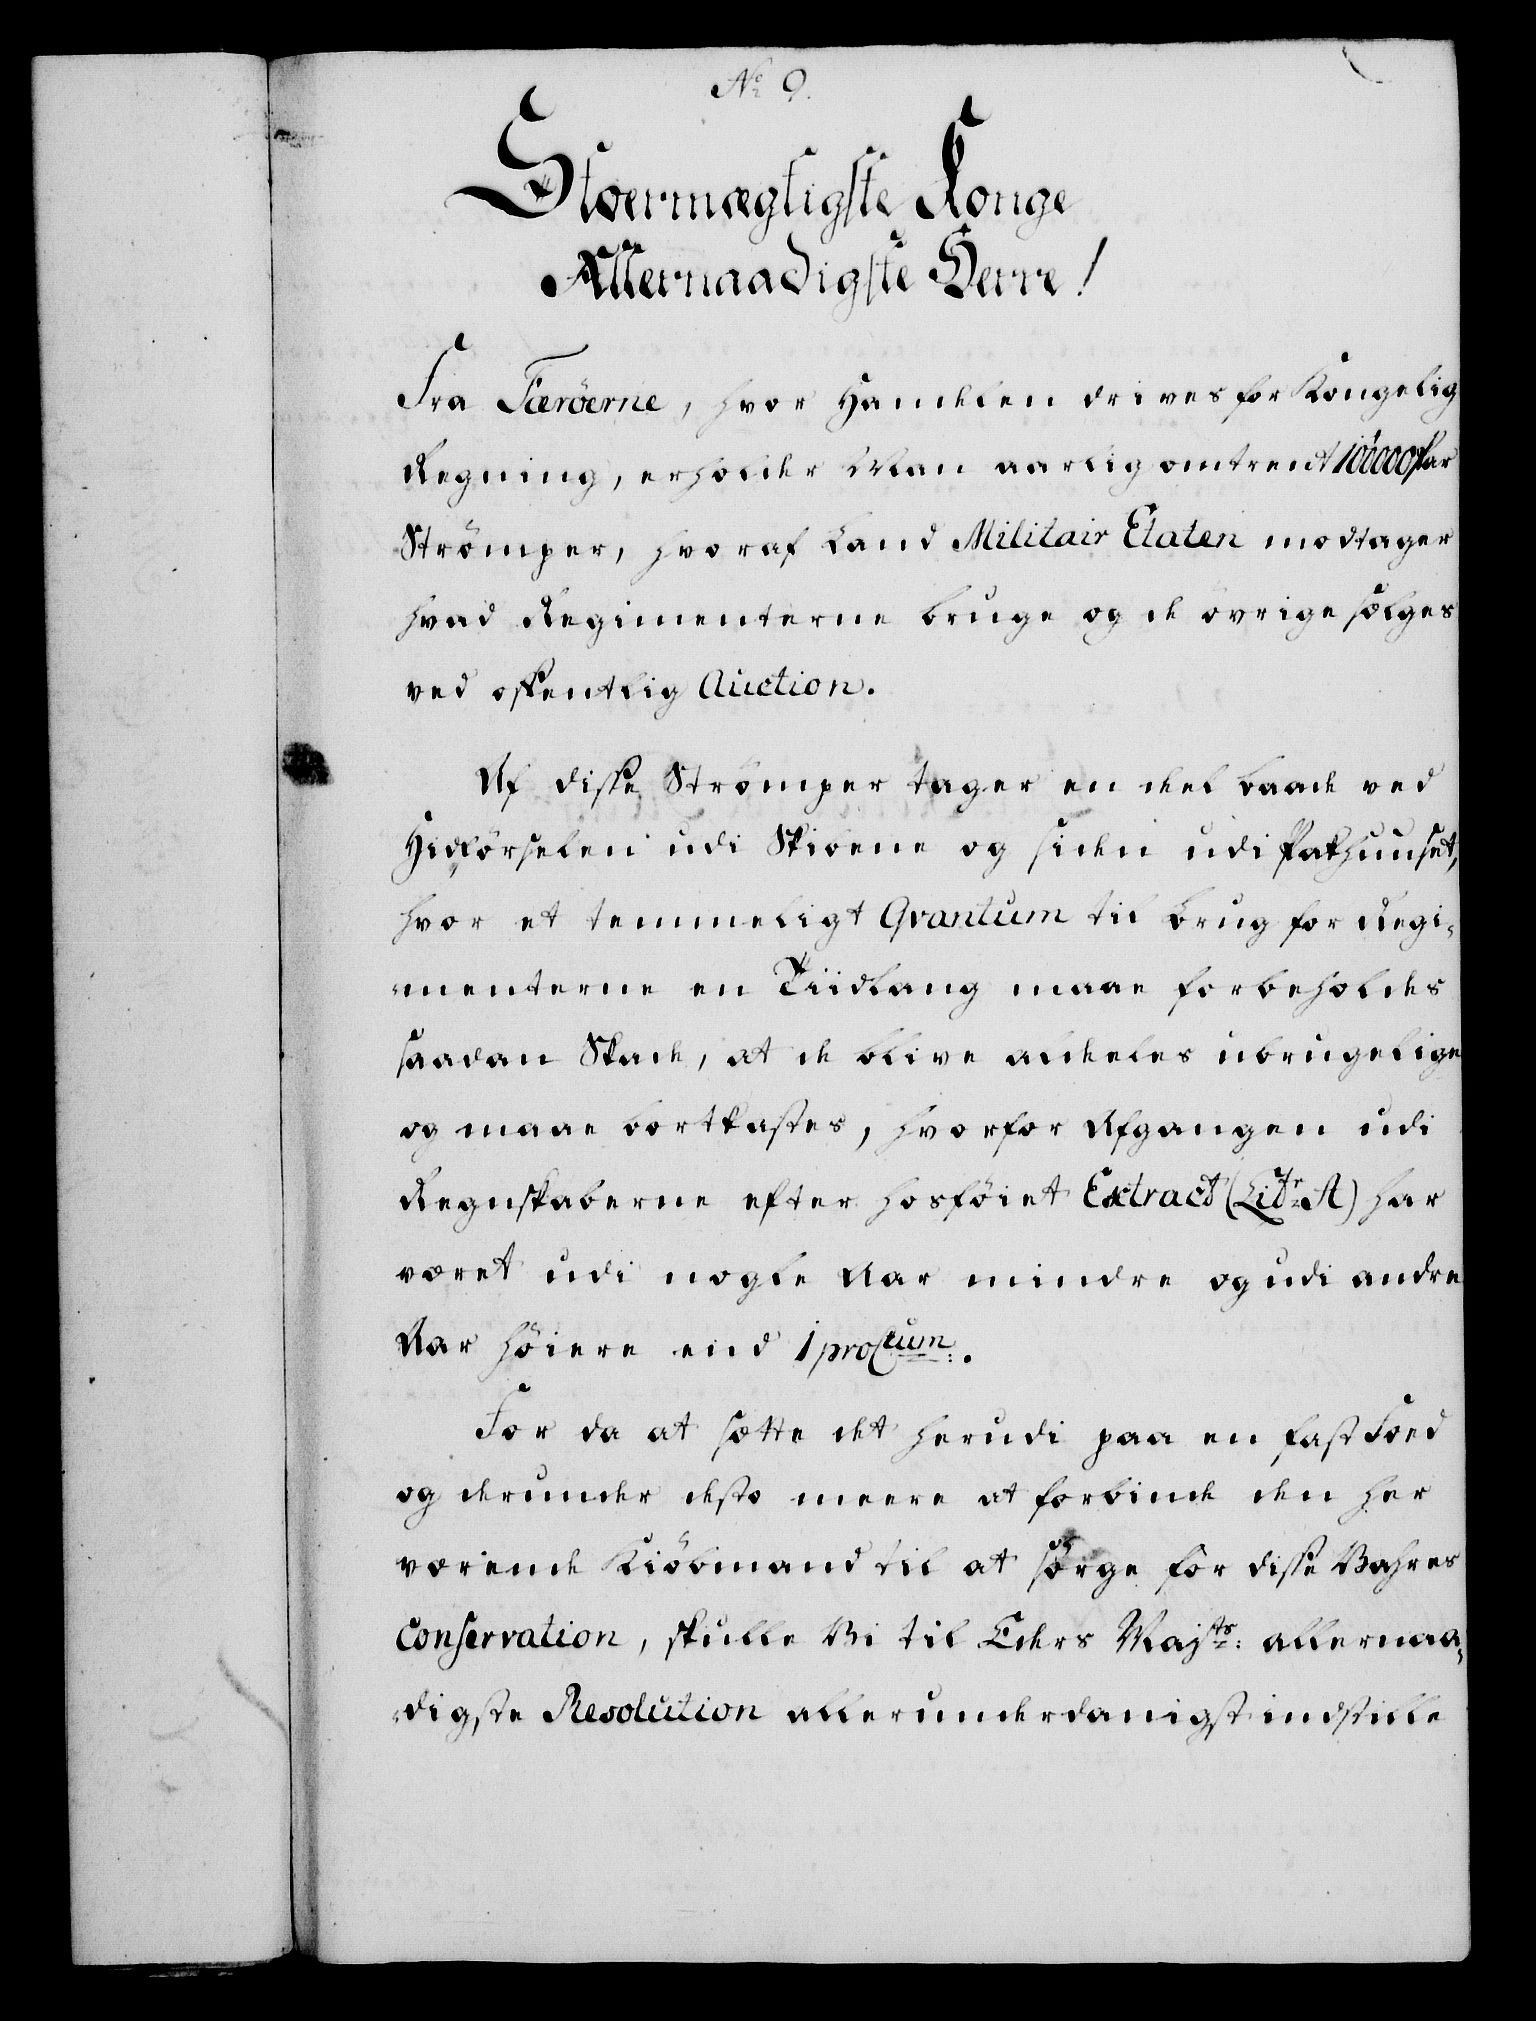 No 9.
Stoermægtigste Konge
Allernaadigste Herre!
Fra Færöerne, hvor Handelen drives for Kongelig
Regning, erholder Man aarlig omtrent 100000 Par
Strömper, hvoraf Land Militair Etaten modtager
hvad Regimenterne bruge og de övrige sælges
ved offentlig Auction.
Af disse Strömper tager en deel baade ved
Hidförselen udi Skibene og siden udi Pakhuuset,
hvor et temmeligt Qvantum til brug for Regi-
menterne en Tiidlang maae forbeholdes
saadan Skade, at de blive aldeles ubrugelige
og maae bortkastes, hvorfor Afgangen udi
Regnskaberne efter hosföiet Extract (Litr A) har
været udi nogle Aar mindre og udi andre
Aar höiere end 1 proCtum.
For da at sætte det herudi paa en fast Foed
og derunder desto meere at forbinde den her
værende Kiöbmand til at sörge for disse Vahres
Conservation, skulle Vi til Eders Majts: allernaa-
digste Resolution allerunderdanigst indstille